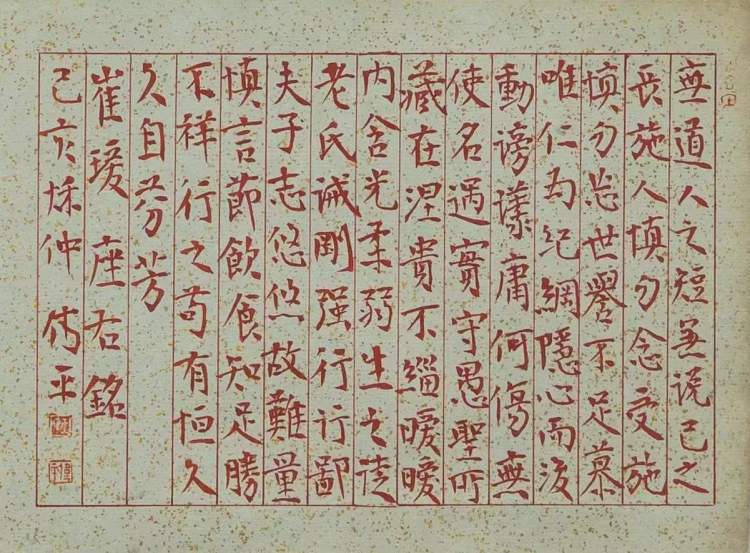 無道人之短無說己之
長施人慎勿念受施
慎勿忘世譽不足慕
唯仁為紀綱隱心而後
動謗議庸何傷無
使名過實守愚聖所
藏在涅貴不緇曖曖
内含光柔弱生之徒
老氏誡剛强行行鄙
夫子志悠悠故難量
慎言節飲食知足勝
不祥行之苟有恒久
久自芬芳
崔瑗座右銘
己亥秋仲 平